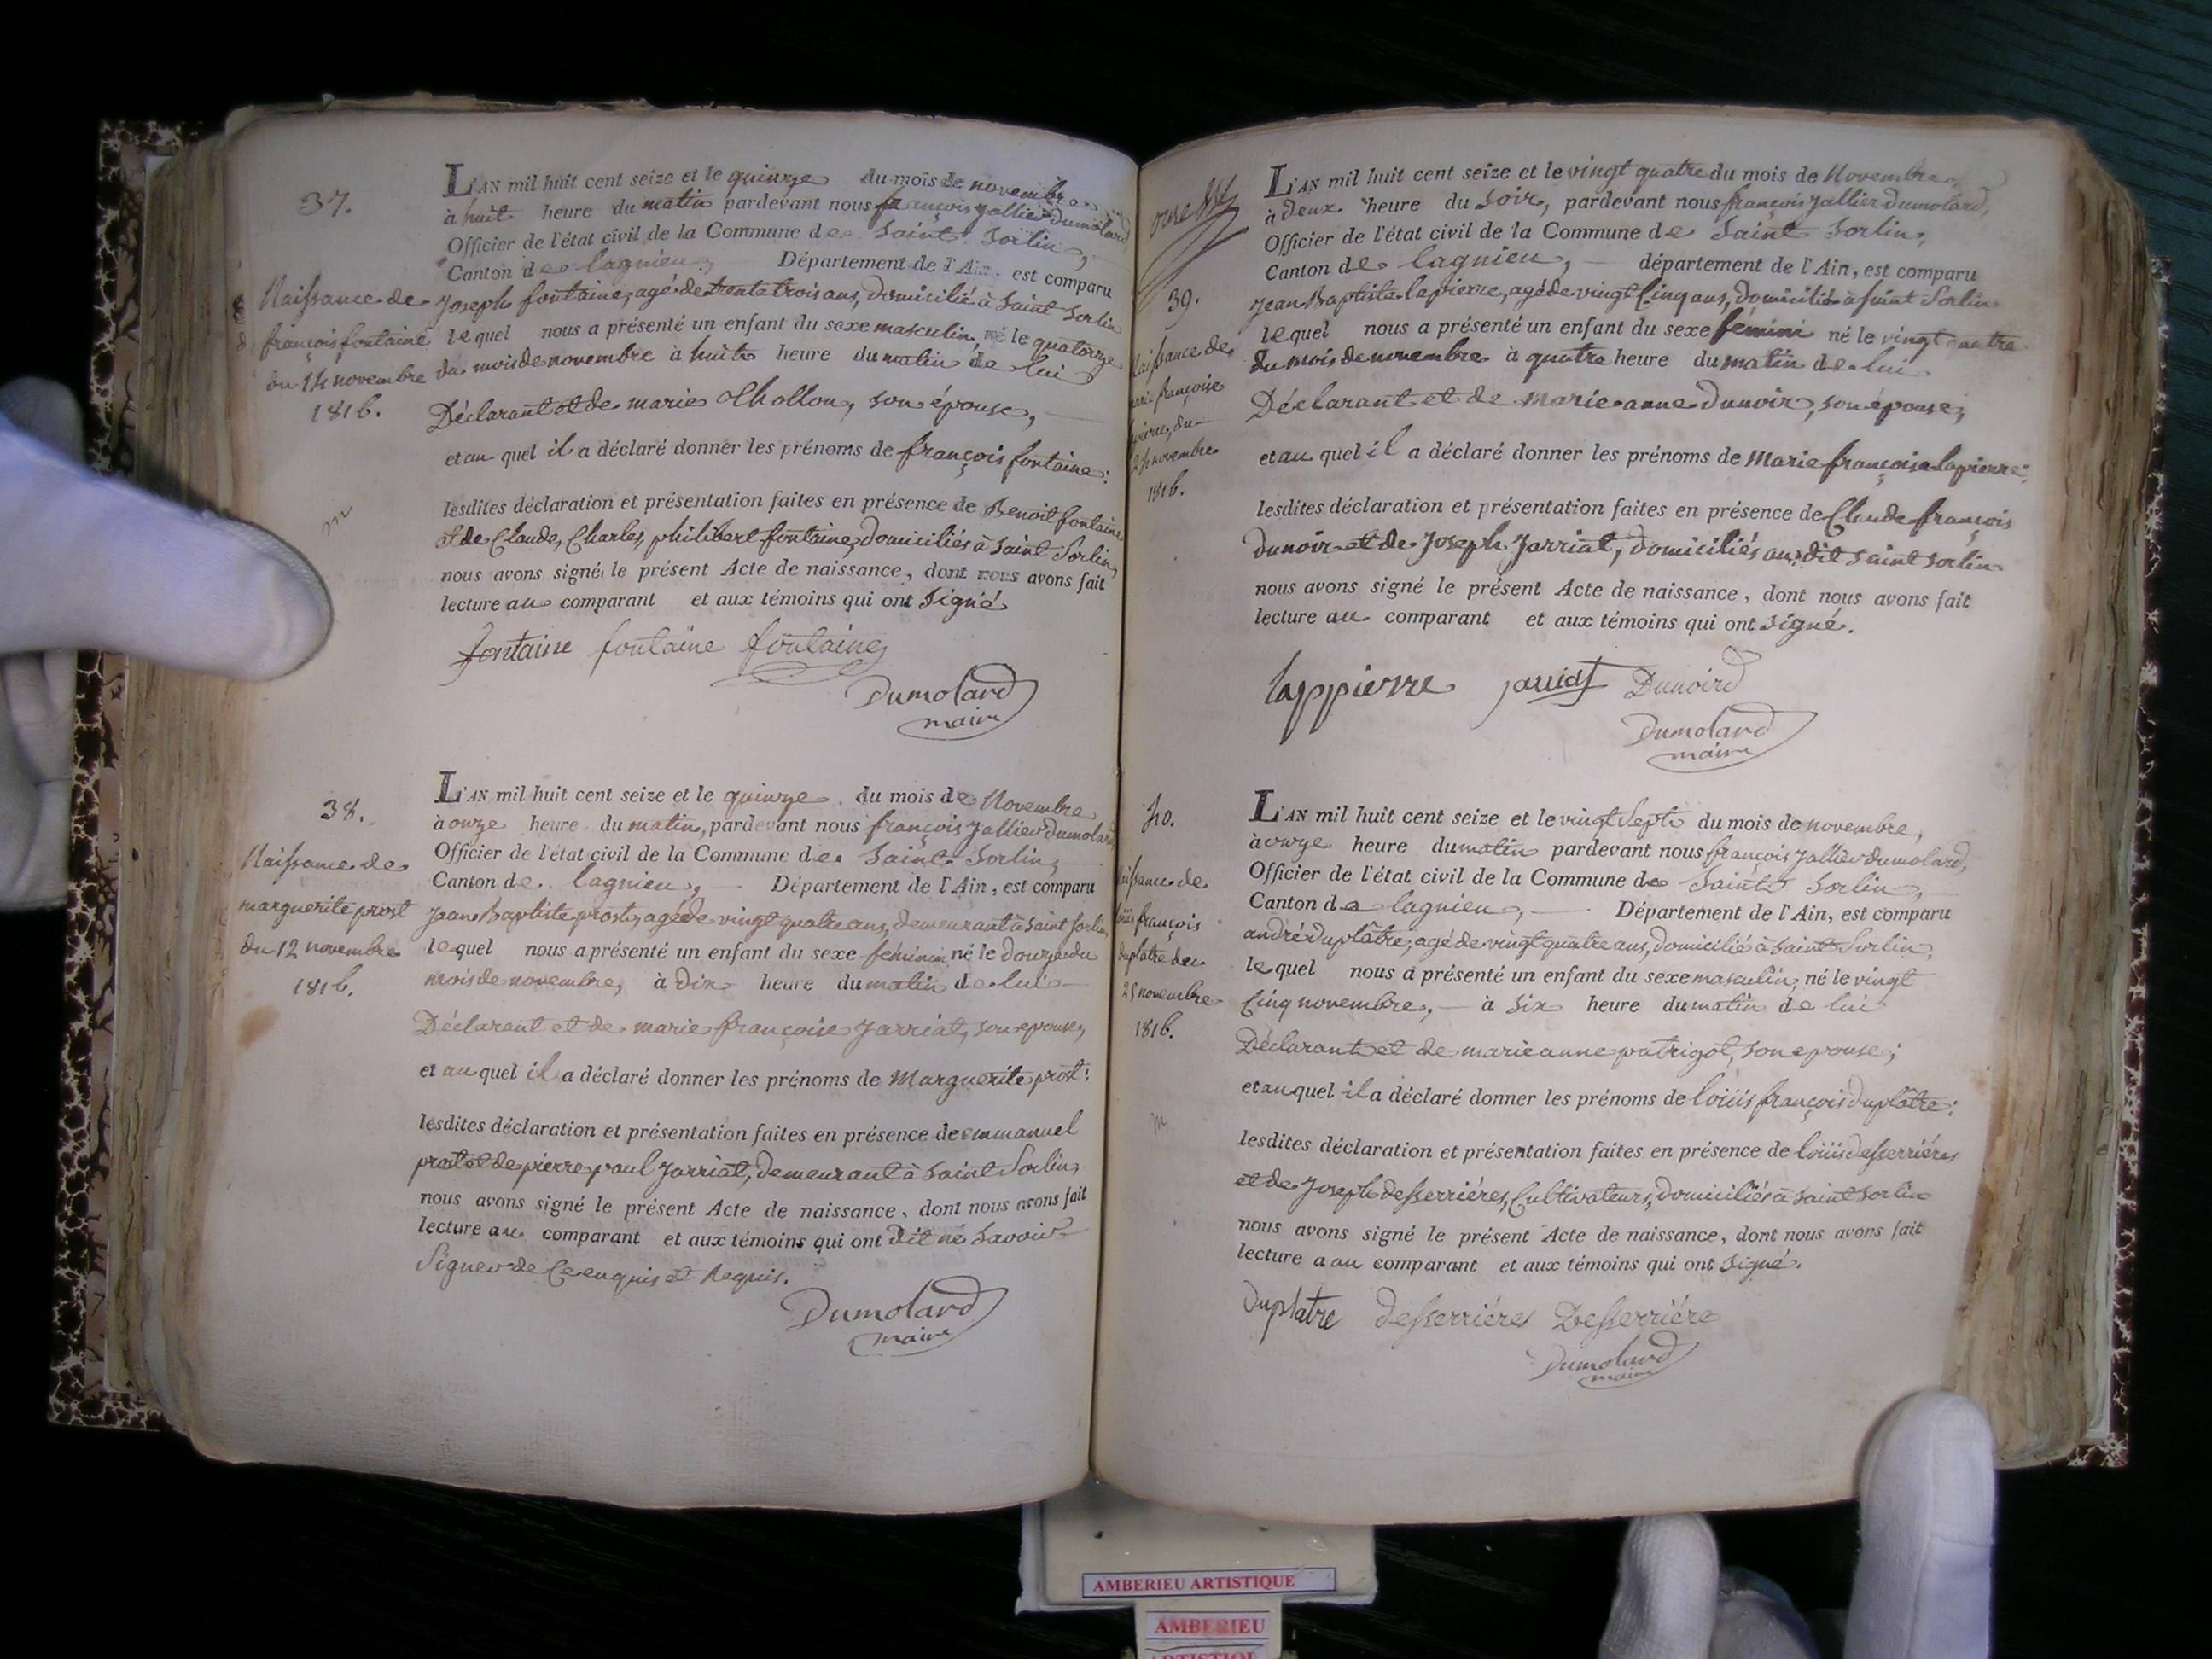 37.
Naissance de
françois fontaine
du 14 novembre
1816.
L'AN mil huit cent seize et le quinze du mois de novembre
à huit heure du matin pardevant nous françois jallier Dumolard,
Officier de l'état civil de la Commune de Saint Sorlin,
Canton de lagnieu, Département de l'Ain, est comparu
Joseph fontaine, agé de trente trois ans, domicilié à Saint Sorlin
lequel nous a présenté un enfant du sexe masculin, né le quatorze
du mois de novembre à huit heure du matin de lui
Déclarant et de marie Chollon, son épouse,
et au quel il a déclaré donner les prénoms de françois fontaine:
lesdites déclaration et présentation faites en présence de Benoit fontaine
et de Claude, Charles, philibert fontaine, domiciliés à Saint Sorlin,
nous avons signé le présent Acte de naissance, dont nous avons fait
lecture au comparant et aux témoins qui ont signé
fontaine fontaine fontaine
Dumolard
maire
38.
Naissance de
marguerite prost
du 12 novembre
1816.
L'AN mil huit cent seize et le quinze du mois de Novembre
à onze heure du matin, pardevant nous françois jallier Dumolard
Officier de l'état civil de la Commune de Saint Sorlin,
Canton de lagnieu, Département de l'Ain, est comparu
Jean Baptiste prost, agé de vingt quatre ans, demeurant à Saint Sorlin,
lequel nous a présenté un enfant du sexe féminin né le Douze du
mois de novembre, à dix heure du matin de lui
Déclarant et de marie françoise Jarriat, son epouse,
et au quel il a déclaré donner les prénoms de Marguerite prost:
lesdites déclaration et présentation faites en présence de emmanuel
prost et de pierre paul Jarriat, demeurant à Saint Sorlin,
nous avons signé le présent Acte de naissance, dont nous avons fait
lecture au comparant et aux témoins qui ont dit ne savoir
Signer de Ce enquis et Requis.
Dumolard
maire
39.
Naissance de
marie françoise
24 novembre
1816.
L'AN mil huit cent seize et le vingt quatre du mois de Novembre,
à deux heure du soir, pardevant nous françois jallier Dumolard,
Officier de l'état civil de la Commune de Saint Sorlin,
Canton de lagnieu, département de l'Ain, est comparu
Jean Baptiste lapierre, agé de vingt Cinq ans, domicilié à Saint Sorlin
lequel nous a présenté un enfant du sexe féminin né le vingt quatre
du mois de novembre à quatre heure du matin de lui
Déclarant et de Marie anne Dunoir, son épouse;
et au quel il a déclaré donner les prénoms de Marie françoise lapierre:
lesdites déclaration et présentation faites en présence de Claude françois
dunoir et de Joseph Jarriat, domiciliés au dit Saint Sorlin
nous avons signé le présent Acte de naissance, dont nous avons fait
lecture au comparant et aux témoins qui ont signé.
lappierre jarriat Dunoird
Dumolard
maire
40.
Naissance de
loüis françois
duplatre du
25 novembre
1816.
L'AN mil huit cent seize et le vingt Sept du mois de novembre,
à onze heure du matin pardevant nous françois jallier Dumolard,
Officier de l'état civil de la Commune de Saint Sorlin,
Canton de lagnieu, Département de l'Ain, est comparu
andré duplâtre, agé de vingt quatre ans, domicilié à Saint Sorlin,
lequel nous a présenté un enfant du sexe masculin, né le vingt
Cinq novembre, à six heure du matin de lui
Déclarant et de marie anne patrigot, son epouse;
et au quel il a déclaré donner les prénoms de loüis françois duplâtre:
lesdites déclaration et présentation faites en présence de loüis desserriéres
et de Joseph desserriéres, Cultivateurs, domiciliés à Saint Sorlin
nous avons signé le présent Acte de naissance, dont nous avons fait
lecture a au comparant et aux témoins qui ont signé.
Duplatre desserriéres Desserriére
Dumolard
maire
AMBERIEU ARTISTIQUE
AMBERIEU
ARTISTIQUE